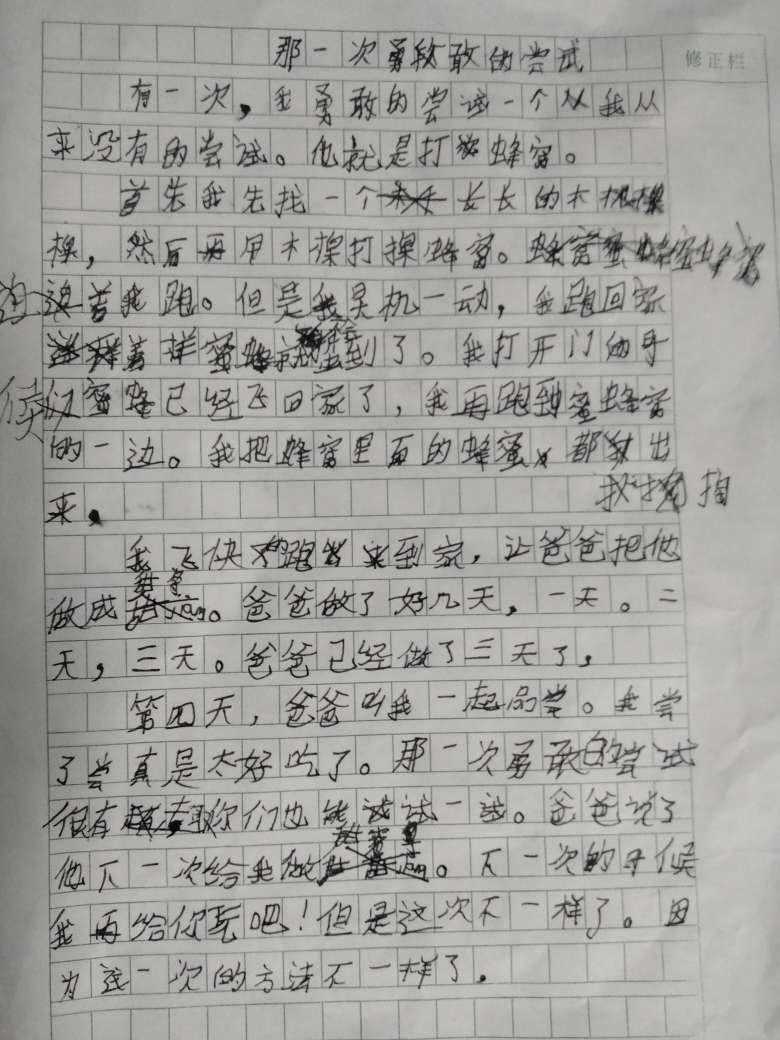 那一次勇敢的尝试
修正栏
有一次，我勇敢的尝试一个从我从
来没有的尝试。他就是打蜂窝。
首先我先找一个长长的木棍
棍，然后再用木棍打蜂窝。
追着我跑。但是我灵机一动，我跑回家
到了。我打开门的时
候蜜蜂已经飞回家了，我再跑到蜜蜂窝
的一边。我把蜂窝里面的蜂蜜都
出
来。
我飞快跑到家，让爸爸把他
做成
。爸爸做了好几天，一天。二
天，三天。爸爸已经做了三天了，
第四天，爸爸叫我一起品尝。我尝
了尝真是太好吃了。那一次勇敢的尝试
很有
你们也能试试一试。爸爸说了
他下一次给我做
。下一次的时候
我再给你玩吧！但是这次不一样了。因
为这一次的方法不一样了。